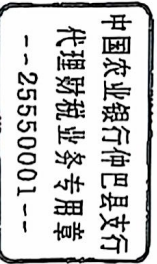 中国农业银行仲巴县支行
代理财税业务专用章
--25550001--